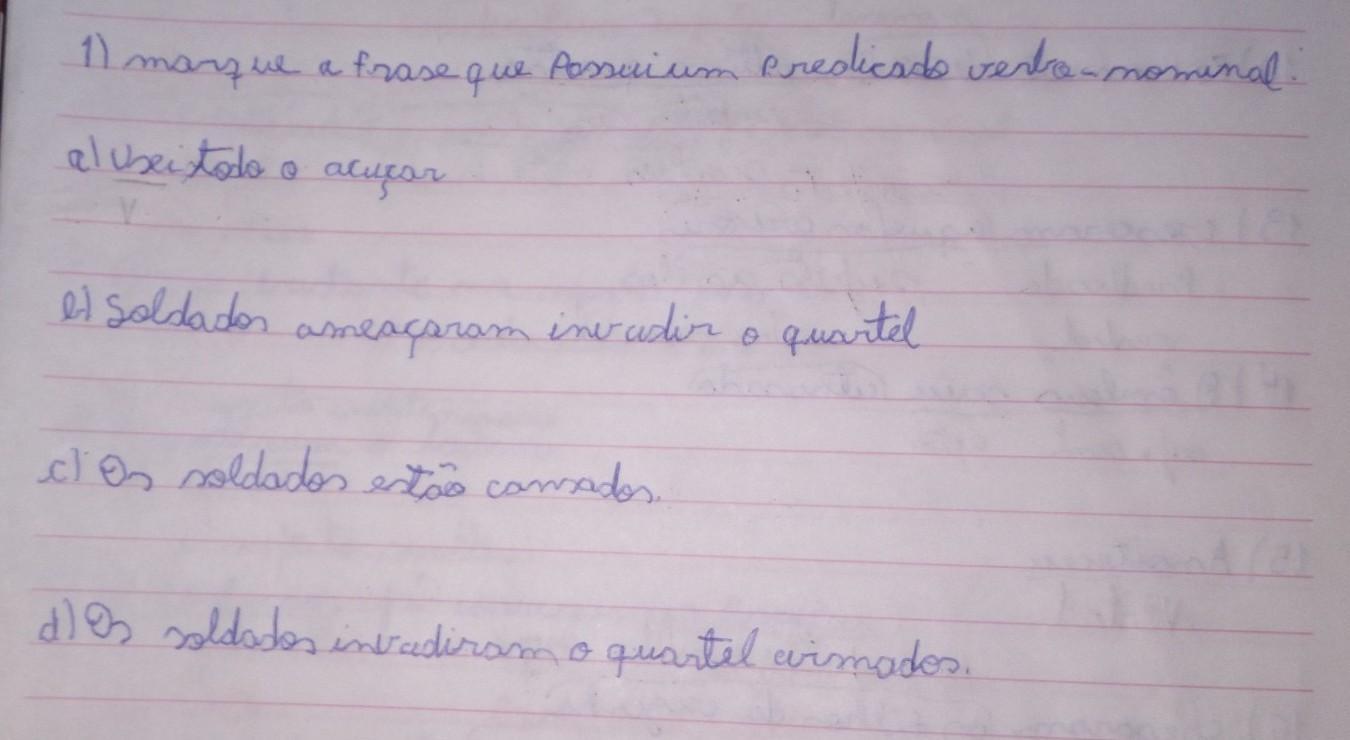 1) marque a frase que Possui um Predicado verbo-nominal.
a) Usei todo o acuçar
V
e) Soldados ameaçaram invadir o quartel
c) Os soldados estão cansados.
d) Os soldados invadiram o quartel armados.